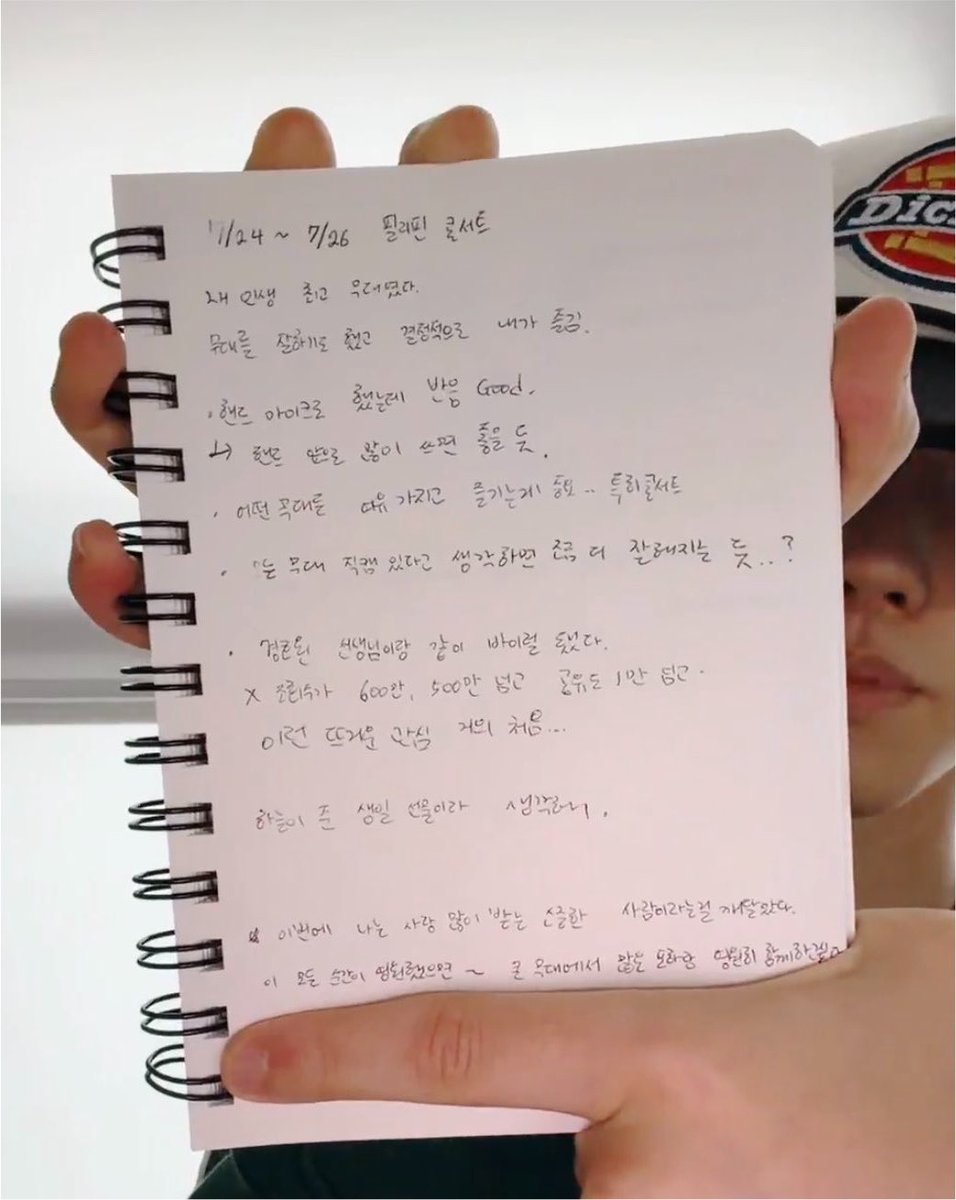 Dic
7/24 ~ 7/26 필리핀 콘서트
내 인생 최고 무대였다.
무대를 잘하기도 했고 결정적으로 내가 즐김.
· 핸드 마이크로 했는데 반응 Good.
↳ 핸드 앞으로 많이 쓰면 좋을 듯.
· 어떤 무대든 여유 가지고 즐기는게 중요..
· 모든 무대 직캠 있다고 생각하면 조금 더 잘해지는 듯...?
· 선생님이랑 같이 바이럴 됐다.
X 조회수가 600만, 500만 넘고 공유도 1만 넘고.
이런 뜨거운 관심 거의 처음...
하늘이 준 생일 선물이라 생각하니.
이번에 나는 사랑 많이 받는 소중한 사람이라는걸 깨달았다.
이 모든 순간이 영원했으면 ~ 큰 무대에서 많은 영원히 함께하는걸